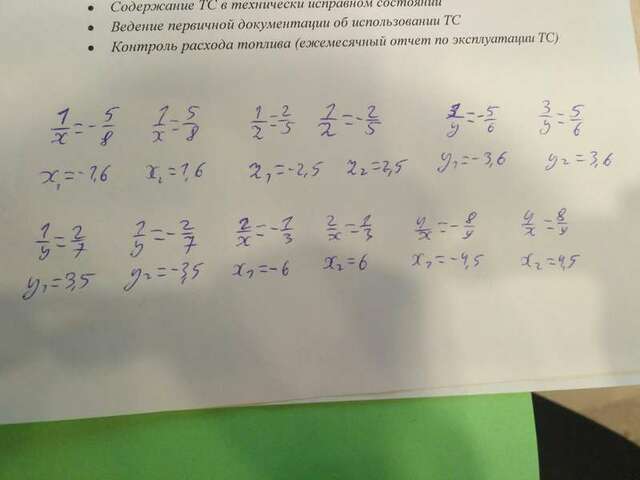 • Содержание ТС в технически исправном состоянии
• Ведение первичной документации об использовании ТС
• Контроль расхода топлива (ежемесячный отчет по эксплуатации ТС)
1/x = -5/8 1/x = 5/8 1/2 = 2/5 1/2 = -2/5 3/y = -5/6 3/y = 5/6
x₁ = -1,6 x₂ = 1,6 z₁ = -2,5 z₂ = 2,5 y₁ = -3,6 y₂ = 3,6
1/y = 2/7 1/y = -2/7 2/x = -1/3 2/x = 1/3 4/x = -8/9 4/x = 8/9
y₁ = 3,5 y₂ = -3,5 x₁ = -6 x₂ = 6 x₁ = -4,5 x₂ = 4,5